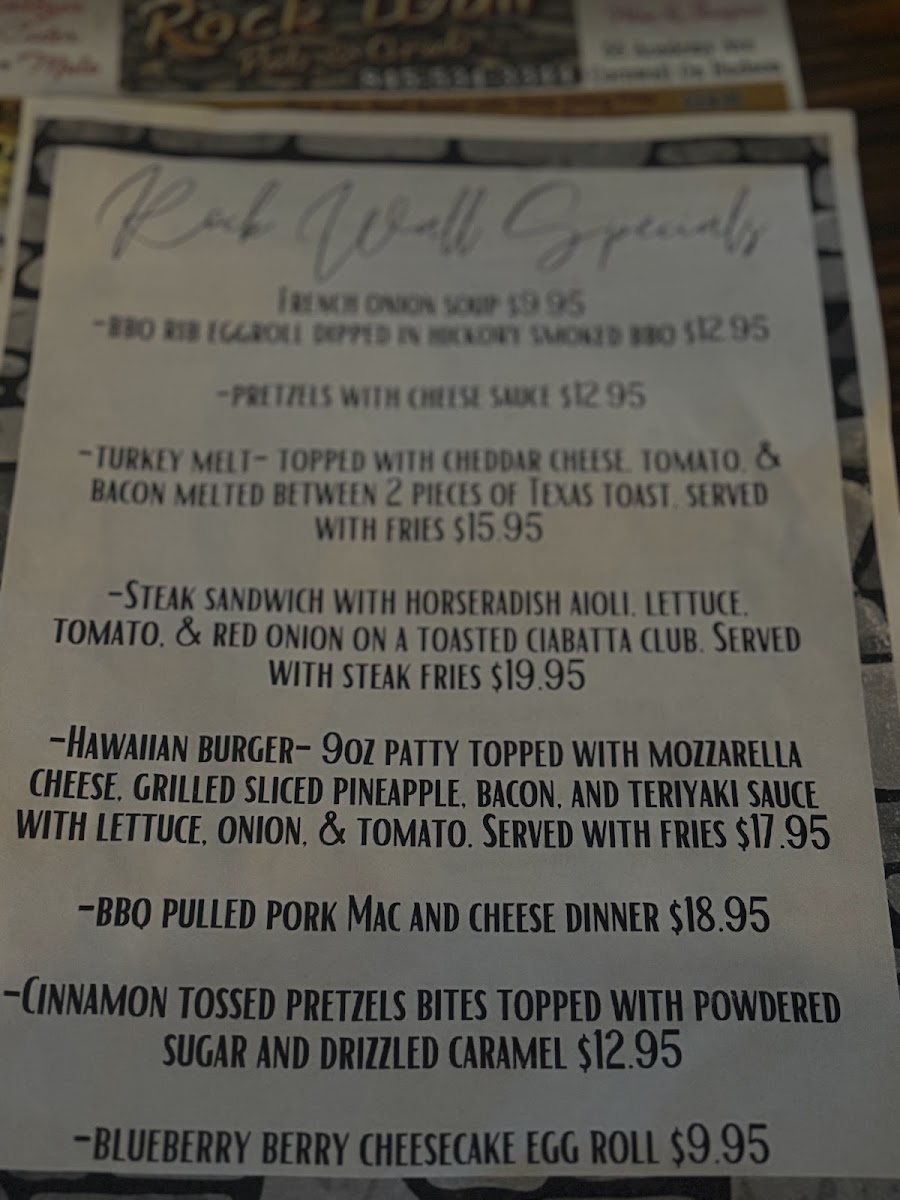 Rock Wall
Pub & Grub
Rock Wall Specials
French onion soup $9.95
-BBQ rib eggroll dipped in hickory smoked BBQ $12.95
-pretzels with cheese sauce $12.95
-turkey melt- topped with cheddar cheese, tomato, &
bacon melted between 2 pieces of Texas toast. served
with fries $15.95
-Steak sandwich with horseradish aioli, lettuce,
tomato, & red onion on a toasted ciabatta club. Served
with steak fries $19.95
-Hawaiian burger- 9oz patty topped with mozzarella
cheese, grilled sliced pineapple, bacon, and teriyaki sauce
with lettuce, onion, & tomato. Served with fries $17.95
-BBQ pulled pork Mac and cheese dinner $18.95
-Cinnamon tossed pretzels bites topped with powdered
sugar and drizzled caramel $12.95
-blueberry berry cheesecake egg roll $9.95